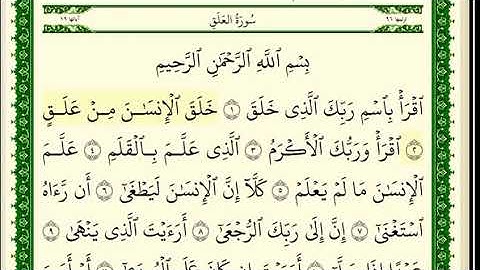 آياتها ١٩ سُورَةُ العَلَقِ ترتيبها ٩٦
بِسْمِ ٱللَّهِ ٱلرَّحْمَٰنِ ٱلرَّحِيمِ
ٱقْرَأْ بِٱسْمِ رَبِّكَ ٱلَّذِى خَلَقَ ۝١ خَلَقَ ٱلْإِنسَٰنَ مِنْ عَلَقٍ
۝٢ ٱقْرَأْ وَرَبُّكَ ٱلْأَكْرَمُ ۝٣ ٱلَّذِى عَلَّمَ بِٱلْقَلَمِ ۝٤ عَلَّمَ
ٱلْإِنسَٰنَ مَا لَمْ يَعْلَمْ ۝٥ كَلَّآ إِنَّ ٱلْإِنسَٰنَ لَيَطْغَىٰٓ ۝٦ أَن رَّءَاهُ
ٱسْتَغْنَىٰٓ ۝٧ إِنَّ إِلَىٰ رَبِّكَ ٱلرُّجْعَىٰٓ ۝٨ أَرَءَيْتَ ٱلَّذِى يَنْهَىٰ ۝٩